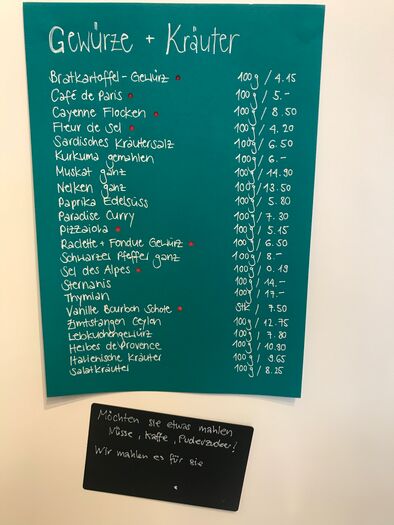 Gewürze + Kräuter
Bratkartoffel-Gewürz 100g / 4.15
Café de Paris 100g / 5.-
Cayenne Flocken 100g / 8.50
Fleur de Sel 100g / 4.20
Sardisches Kräutersalz 100g / 6.50
Kurkuma gemahlen 100g / 6.-
Muskat ganz 100g / 14.90
Nelken ganz 100g / 13.50
Paprika Edelsüss 100g / 5.80
Paradise Curry 100g / 7.30
Pizzaiola 100g / 5.15
Raclette + Fondue Gewürz 100g / 6.50
Schwarzer Pfeffer ganz 100g / 8.-
Sel des Alpes 100g / 0.19
Sternanis 100g / 14.-
Thymian 100g / 17.-
Vanille Bourbon Schote Stk / 7.50
Zimtstangen Ceylon 100g / 12.75
Lebkuchengewürz 100g / 7.80
Herbes de Provence 100g / 10.80
Italienische Kräuter 100g / 9.65
Salatkräuter 100g / 8.25
Möchten sie etwas mahlen
Nüsse, Kaffe, Puderzucker!
Wir mahlen es für sie